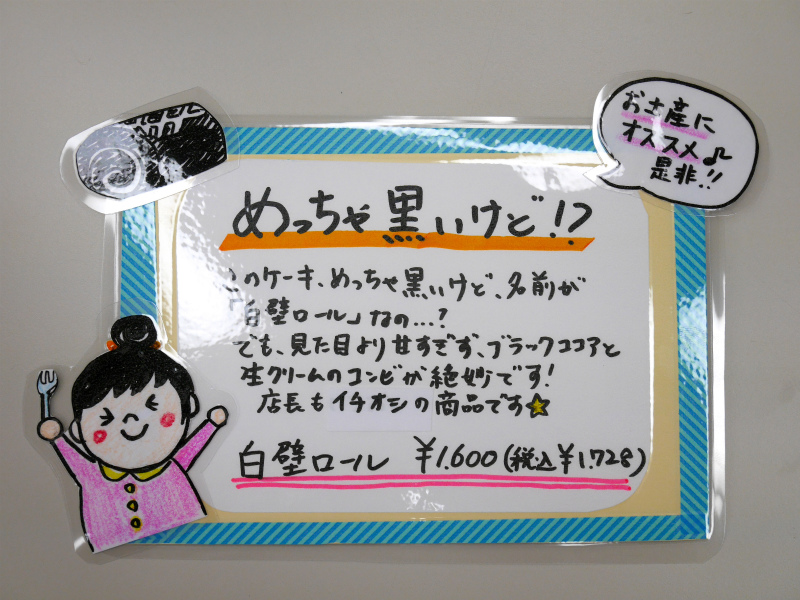 お土産に
オススメ♪
是非!!
めっちゃ黒いけど!?
このケーキ、めっちゃ黒いけど、名前が
「白壁ロール」なの…?
でも、見た目より甘すぎず、ブラックココアと
生クリームのコンビが絶妙です!
店長もイチオシの商品です☆
白壁ロール ¥1.600(税込¥1.728)